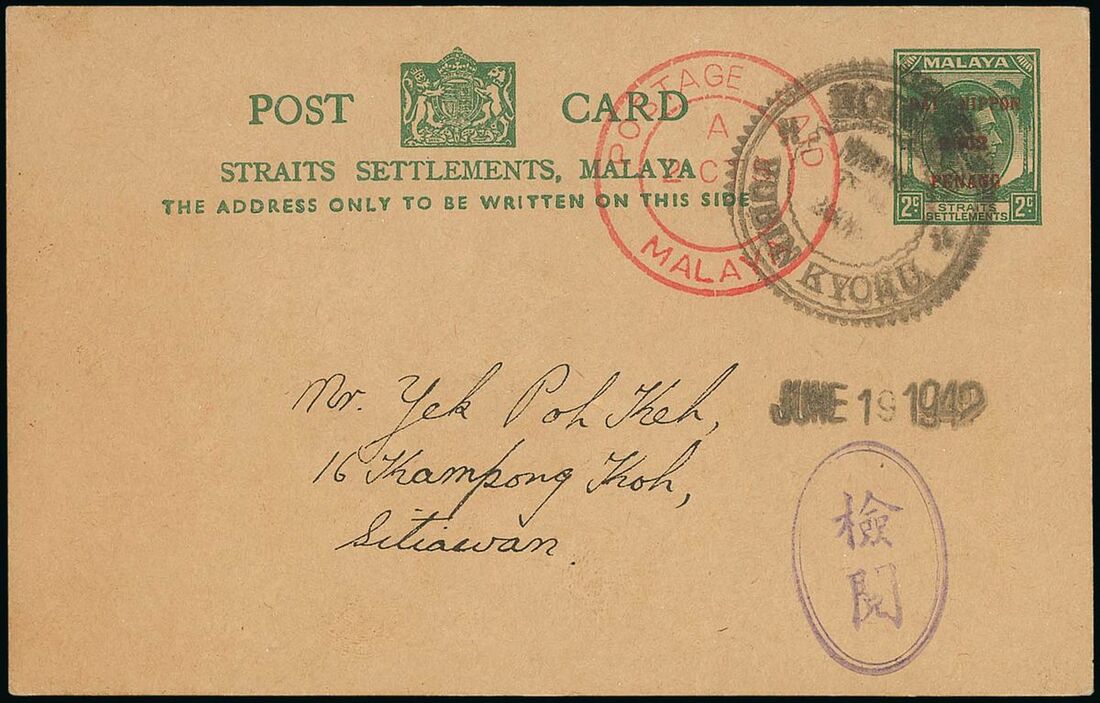 POST CARD
STRAITS SETTLEMENTS, MALAYA
THE ADDRESS ONLY TO BE WRITTEN ON THIS SIDE
POSTAGE PAID
A
2 CTS
MALAYA
YUBIN KYOKU
MALAYA
DAI NIPPON
2602
PENANG
2c STRAITS SETTLEMENTS 2c
JUNE 19 1942
Mr. Yek Poh Keh,
16 Kampong Koh,
Sitiawan.
檢閱